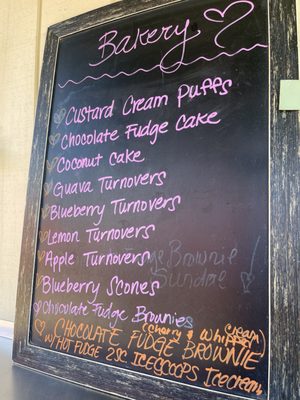 Bakery
Custard Cream Puffs
Chocolate Fudge Cake
Coconut Cake
Guava Turnovers
Blueberry Turnovers
Lemon Turnovers
Apple Turnovers
Brownie
Sundae !
Blueberry Scones
Chocolate Fudge Brownies
(Cherry & Whipped Cream)
CHOCOLATE FUDGE BROWNIE
W/ HOT FUDGE 2 SC. ICE SCOOPS Icecream